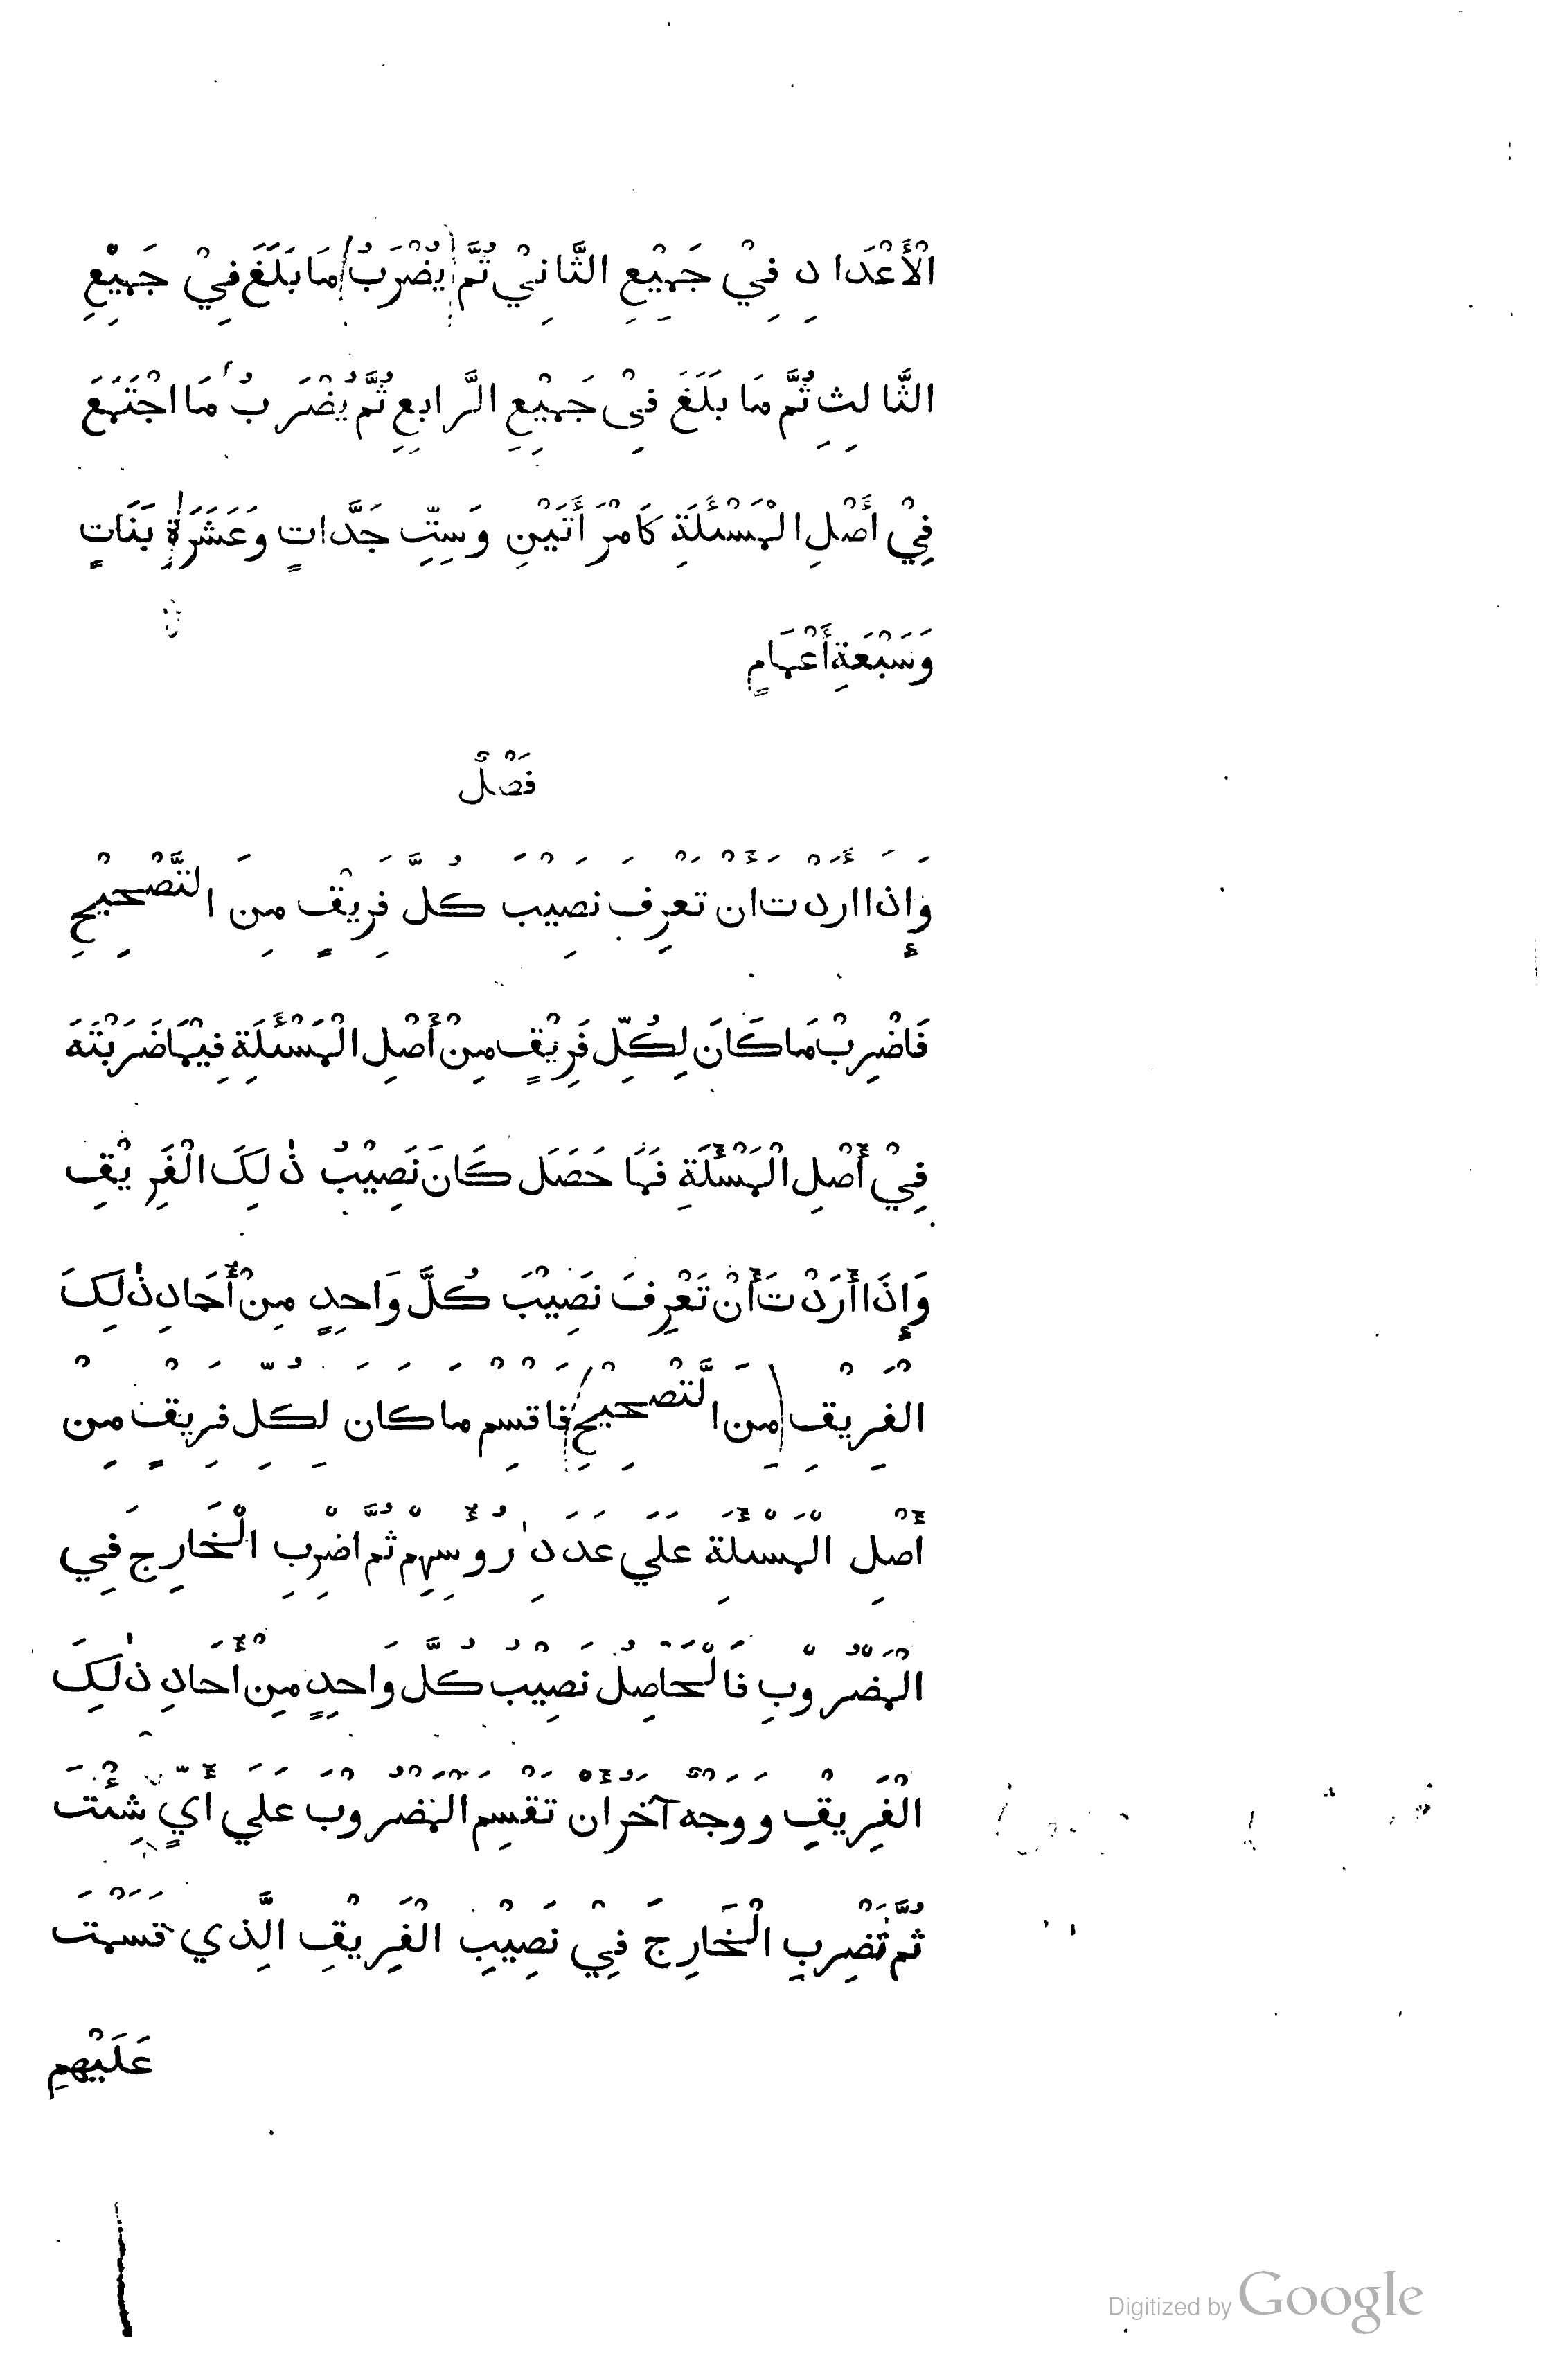 الْأَعْدَادِ فِيْ جَمِيْعِ الثَّانِيْ ثُمَّ يُضْرَبُ مَا بَلَغَ فِيْ جَمِيْعِ
الثَّالِثِ ثُمَّ مَا بَلَغَ فِيْ جَمِيْعِ الرَّابِعِ ثُمَّ يُضْرَبُ مَا اجْتَمَعَ
فِيْ أَصْلِ الْمَسْئَلَةِ كَامْرَأَتَيْنِ وَسِتِّ جَدَّاتٍ وَعَشَرَةِ بَنَاتٍ
وَسَبْعَةِ أَعْمَامٍ
فَصْلٌ
وَإِذَا أَرَدْتَ أَنْ تَعْرِفَ نَصِيْبَ كُلَّ فَرِيْقٍ مِنَ التَّصْحِيْحِ
فَاضْرِبْ مَا كَانَ لِكُلِّ فَرِيْقٍ مِنْ أَصْلِ الْمَسْئَلَةِ فِيْمَا ضَرَبْتَهَ
فِيْ أَصْلِ الْمَسْئَلَةِ فَمَا حَصَلَ كَانَ نَصِيْبُ ذٰلِكَ الْفَرِيْقِ
وَإِذَا أَرَدْتَ أَنْ تَعْرِفَ نَصِيْبَ كُلَّ وَاحِدٍ مِنْ أَحَادِ ذٰلِكَ
الْفَرِيْقِ (مِنَ التَّصْحِيْحِ) فَاقْسِمْ مَا كَانَ لِكُلِّ فَرِيْقٍ مِنْ
أَصْلِ الْمَسْئَلَةِ عَلَي عَدَدِ رُؤُسِهِمْ ثُمَّ اضْرِبِ الْخَارِجَ فِي
الْمَضْرُوْبِ فَالْحَاصِلُ نَصِيْبُ كُلَّ وَاحِدٍ مِنْ أَحَادِ ذٰلِكَ
الْفَرِيْقِ وَوَجْهٌ آخَرُ أَنْ تَقْسِمَ الْمَضْرُوْبَ عَلَي أَيِّ شِئْتَ
ثُمَّ تَضْرِبِ الْخَارِجَ فِيْ نَصِيْبِ الْفَرِيْقِ الَّذِي قَسَمْتَ
عَلَيْهِمِ
Digitized by Google